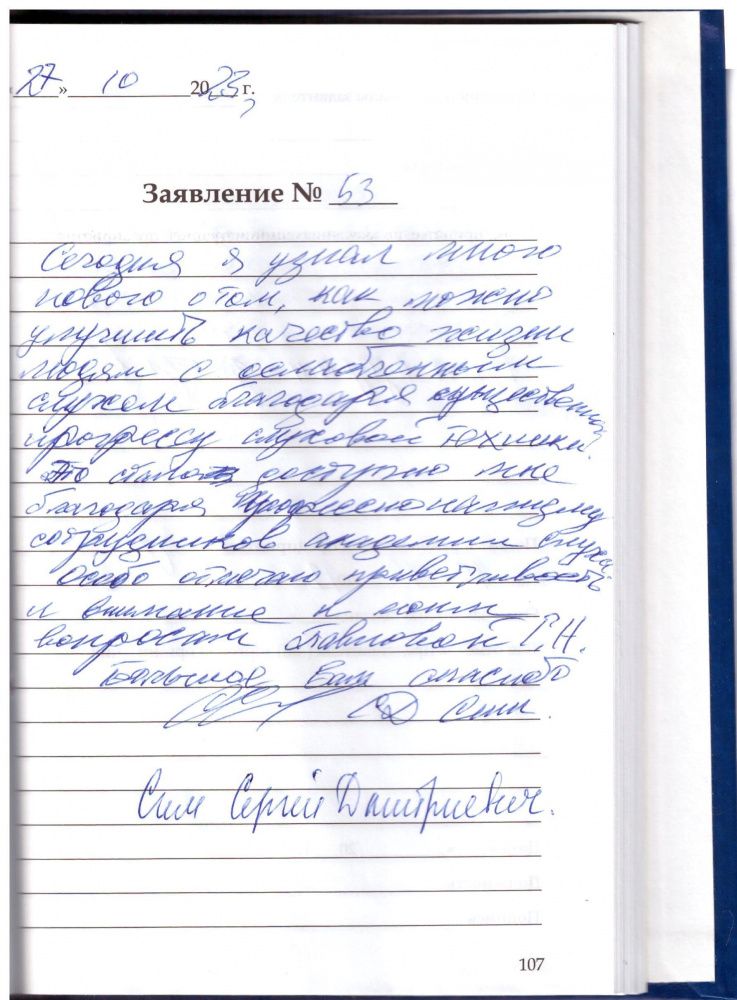 «27» 10 2023 г.
Заявление № 53
Сегодня я узнал много
нового о том, как можно
улучшить качество жизни
людям с ослабленным
слухом благодаря существенному
прогрессу слуховой техники.
Это стало доступно мне
благодаря профессионализму
сотрудников академии слуха
Особо отмечаю приветливость
и внимание к моим
вопросам Павловой Г.Н.
Большое вам спасибо
СД Сим.
Сим Сергей Дмитриевич.
107